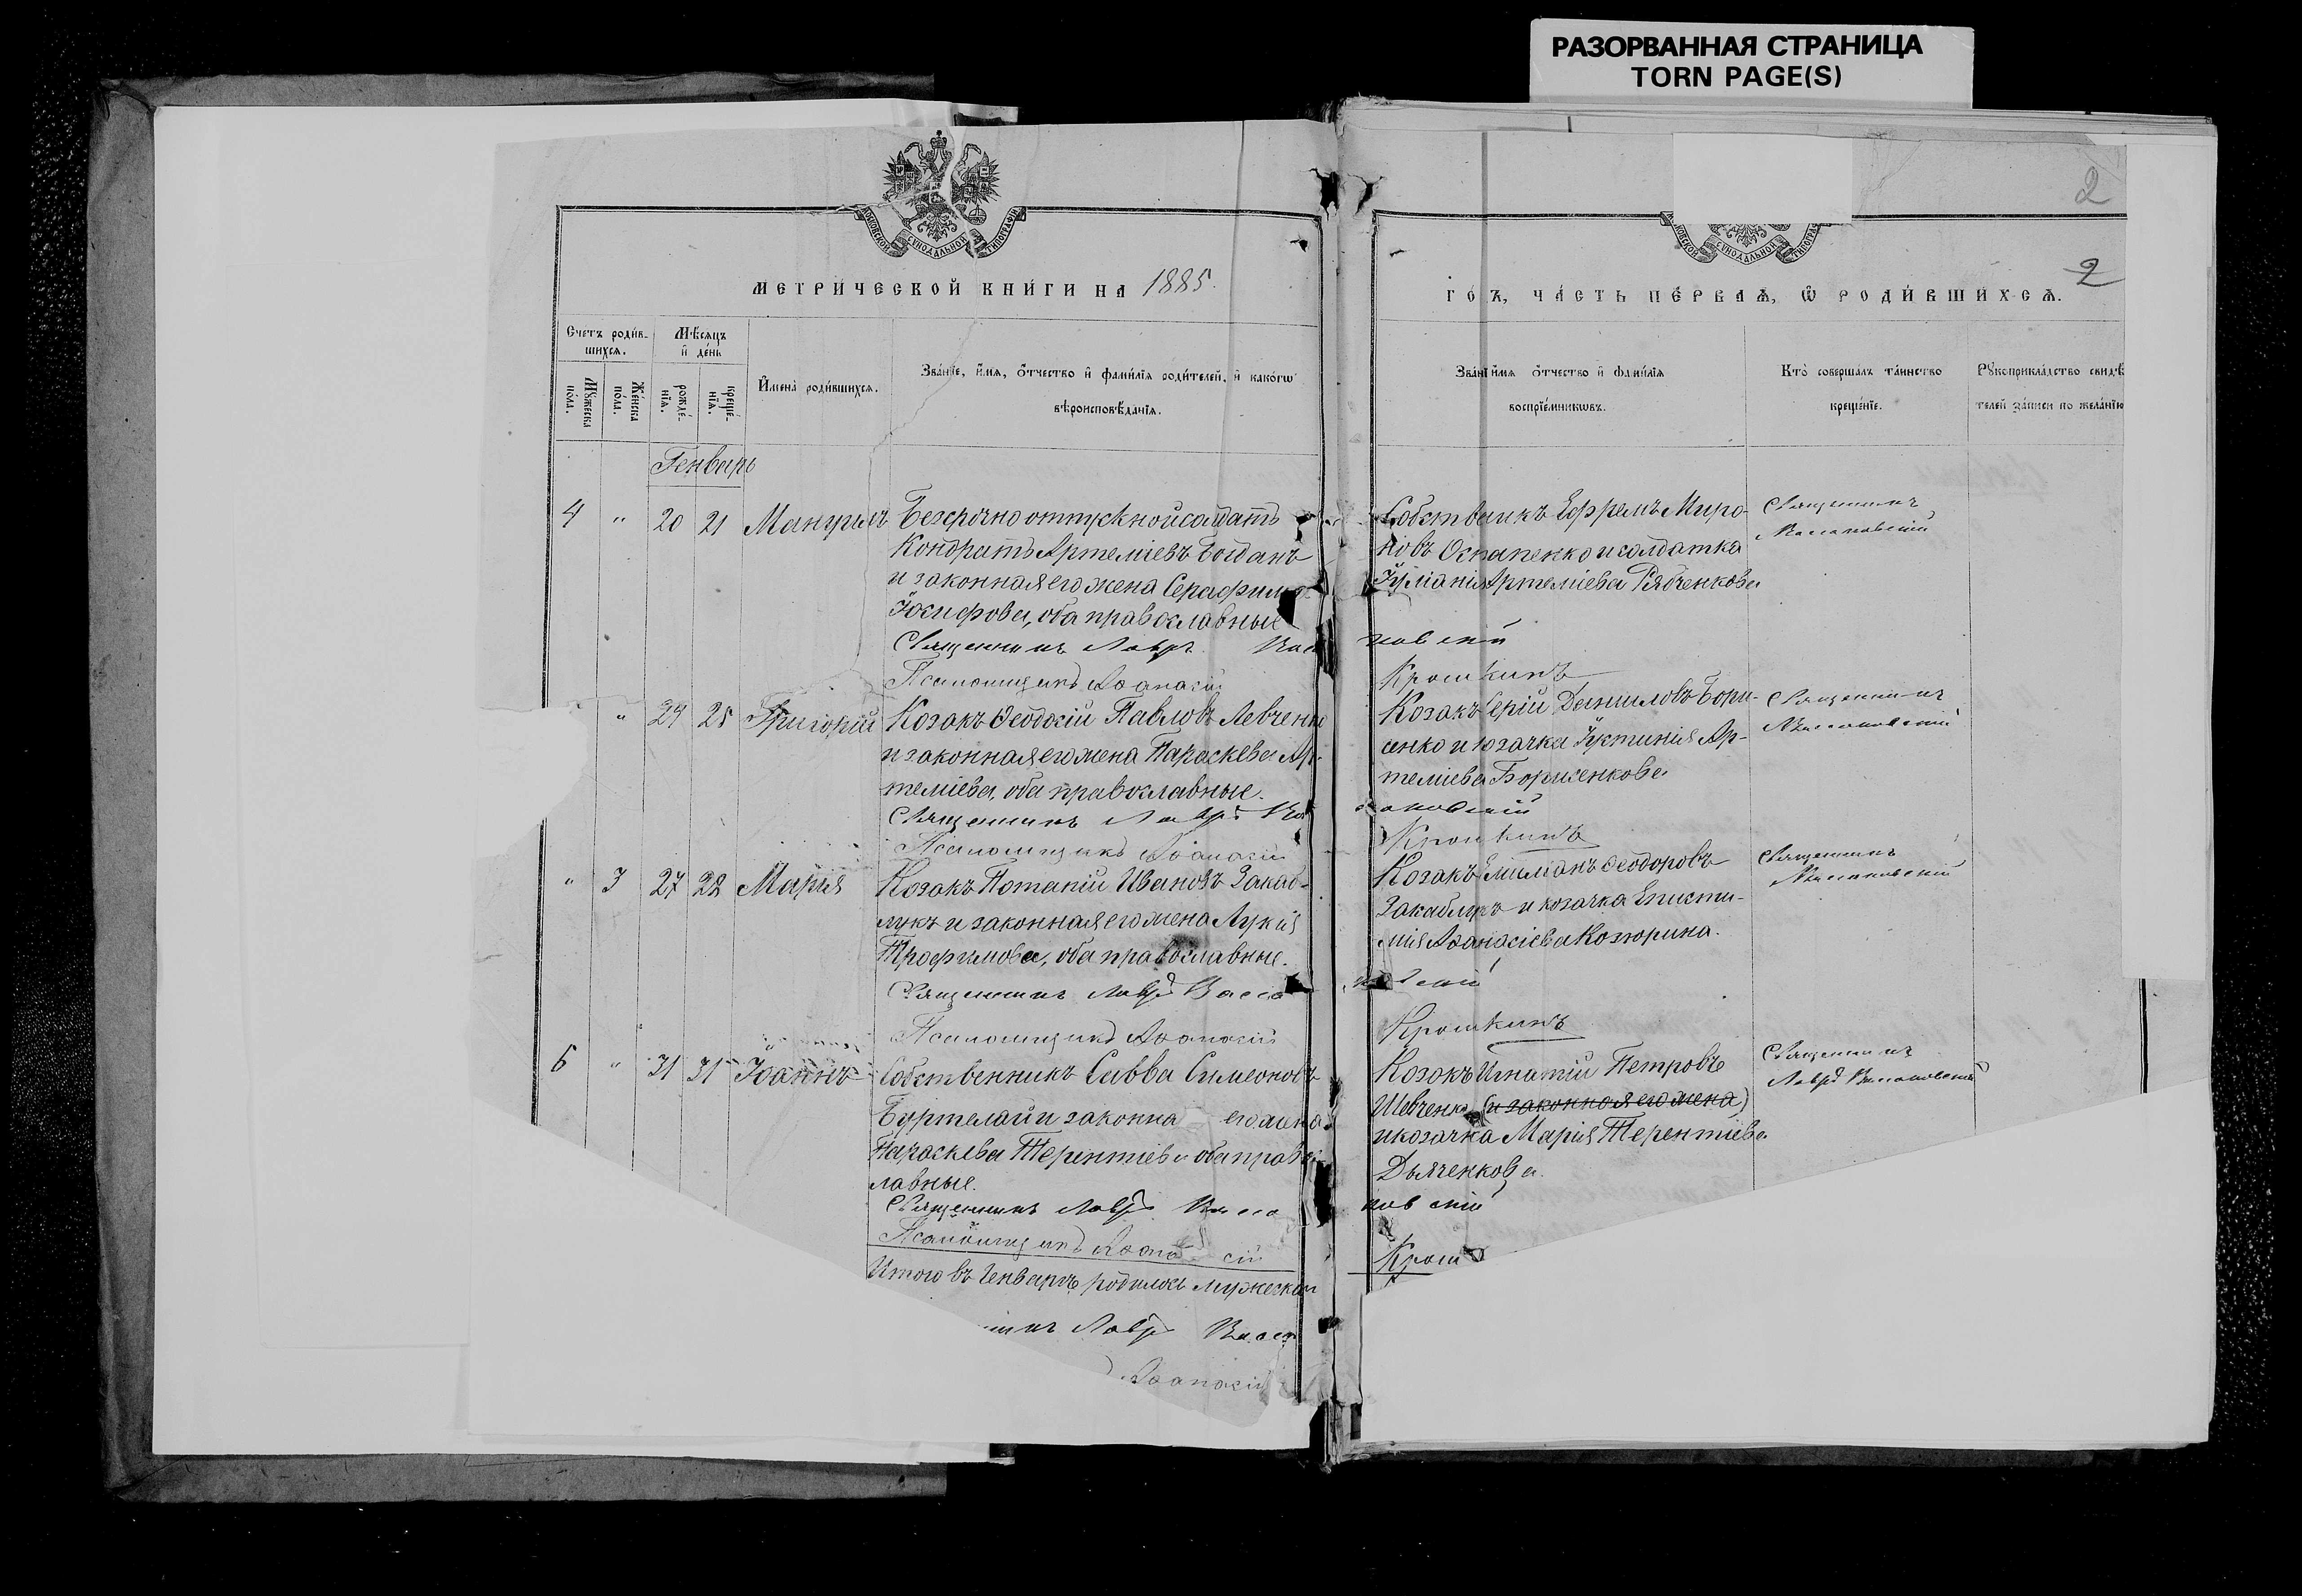 РАЗОРВАННАЯ СТРАНИЦА
TORN PAGE(S)
2
МОСКОВСКОЙ СУНОДАЛЬНОЙ ТИПОГРАФІИ
СУНОДАЛЬНОЙ
МЕТРИЧЕСКОЙ КНИГИ НА 1885.
ГОДЪ, ЧАСТЬ ПЕРВАЯ, Ѿ РОДИВШИХСЯ.
2
Счетъ родив-
шихся.
Мѣсяцъ
и день
Мꙋжеска
пола.
Женска
пола.
рожде-
нія.
креще-
нія.
Имена родившихся.
Званіе, имя, отчество и фамилія родителей, и какогѡ
вѣроисповѣданія.
Званіе имя отчество и фамилія
воспріемникѡвъ.
Кто совершалъ таинство
крещеніе.
Рꙋкоприкладство свидѣ
телей записи по желанію
Генварь
4 " 20 21 Мануилъ
Безсрочно отпускной солдатъ
Кондратъ Артеміевъ Богданъ
и законная его жена Серафима
Іосифова, оба православные
Священникъ Лавръ
Псаломщикъ Аѳанасій
Собственикъ Ефремъ Миро-
новъ Остапенко и солдатка
Іуліанія Артеміева Рябченкова
новскій
Крошкинъ
Священникъ
" 24 25 Григорій
Козакъ Ѳеодосій Павловъ Левченко
и законная его жена Параскева Ар-
теміева, оба православные.
Священникъ Лавръ
Псаломщикъ Аѳанасій
Козакъ Сергій Даниловъ Бори-
сенко и козачка Іустинія Ар-
теміева Борисенкова
ановскій
Крошкинъ
Священникъ
" 3 27 28 Марія
Козакъ Потапій Ивановъ Закаб-
лукъ и законная его жена Лукія
Трофимова, оба православные.
Священникъ Лавръ
Псаломщикъ Аѳанасій
Козакъ Емиліанъ Ѳеодоровъ
Закаблукъ и козачка Еписти-
мія Аѳанасіева Козюрина.
новскій
Крошкинъ
Священникъ
6 " 31 31 Іоаннъ
Собственникъ Савва Симеоновъ
Буртелай и законна его жена
Параскева Терентіева оба право-
лавные.
Священникъ Лавръ
Псаломщикъ Аѳанасій
Козакъ Игнатій Петровъ
Шевченко (и законная его жена)
и козачка Марія Терентіева
Дьяченкова.
новскій
Крош
Священникъ
Лавръ
Итого въ Генварѣ родилось мужеска
никъ Лавръ
Аѳанасій